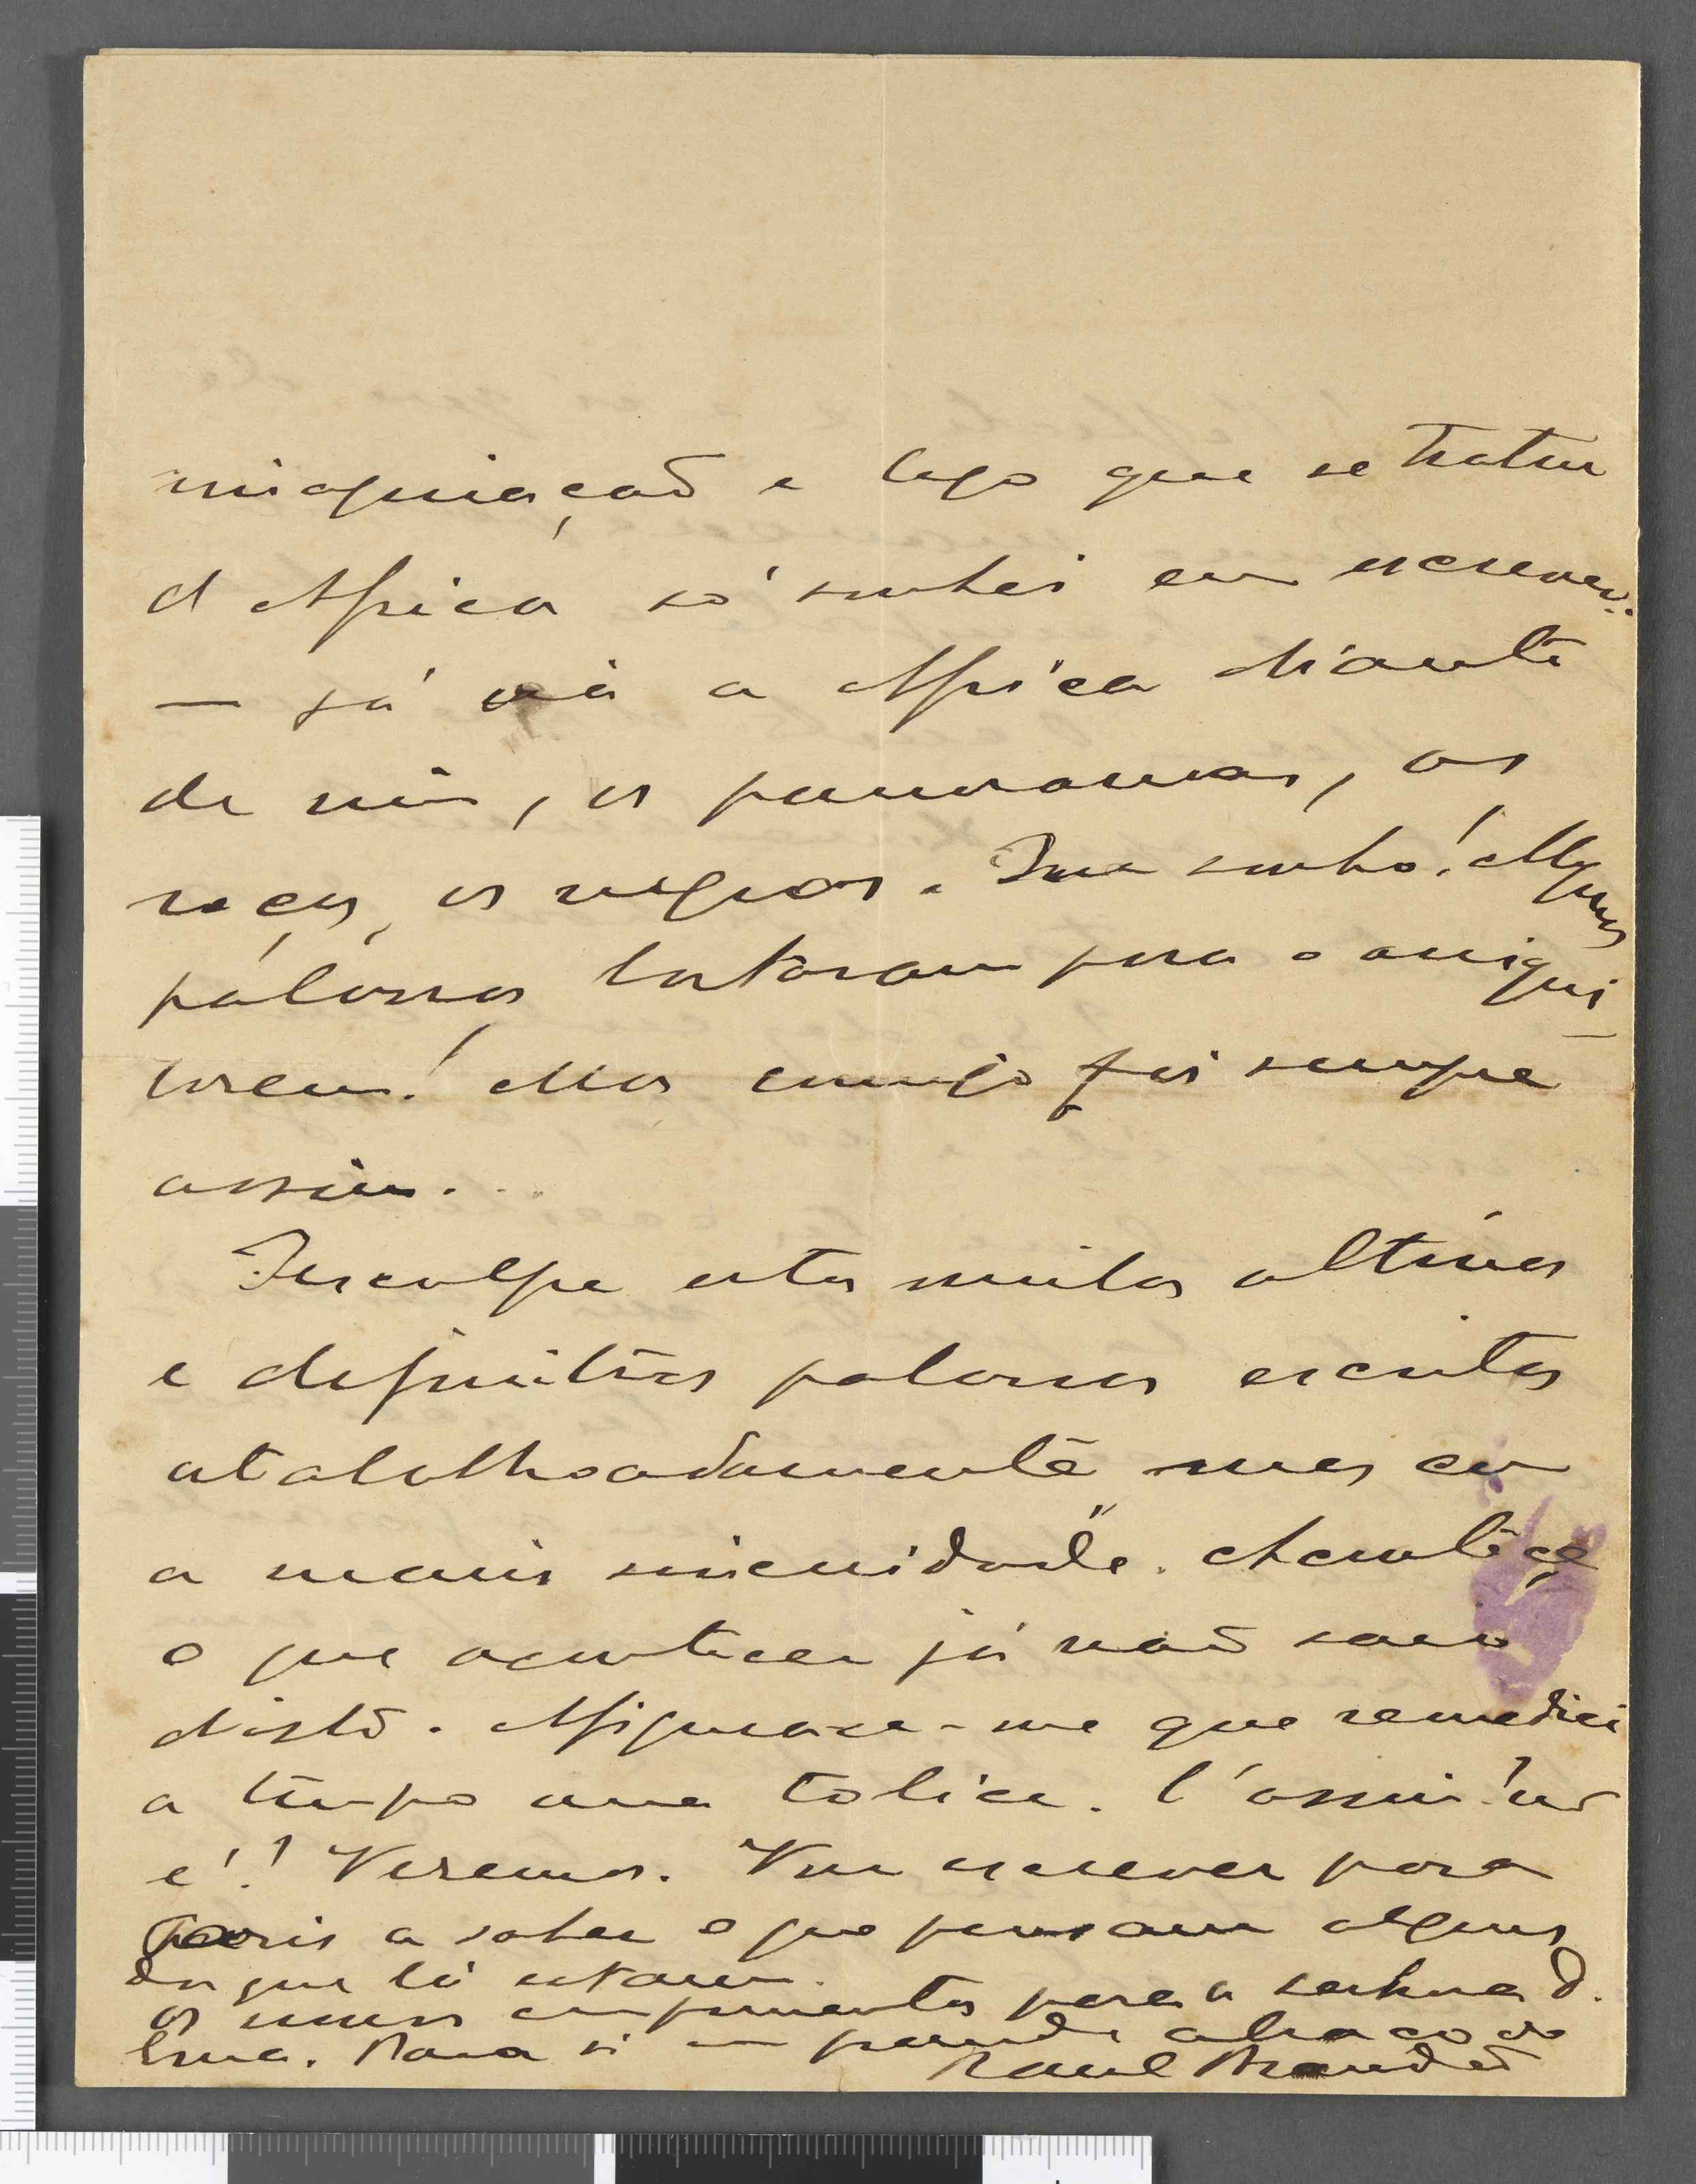 imaginação e logo que se tratou
d Africa só sonhei em escrever.
— já via a Africa diante
de mim, os panoramas, as
raças, os negros. Que sonho! Algumas
palavras bastaram para o aniqui-
larem! Mas comigo foi sempre
assim...
Desculpe estas minhas ultimas
e definitivas palavras escritas
atabalhoadamente mas com
a maior sinceridade. Aconteça
o que acontecer já não saio
disto. Afigura-se-me que remediei
a tempo uma tolice. É assim? não
é?! Veremos. Vou escrever para
Paris a saber o que pensam alguns
dos que lá estam.
Os meus cumprimentos para a senhora D.
Ema. Para si um grande abraço do
Raul Brandão